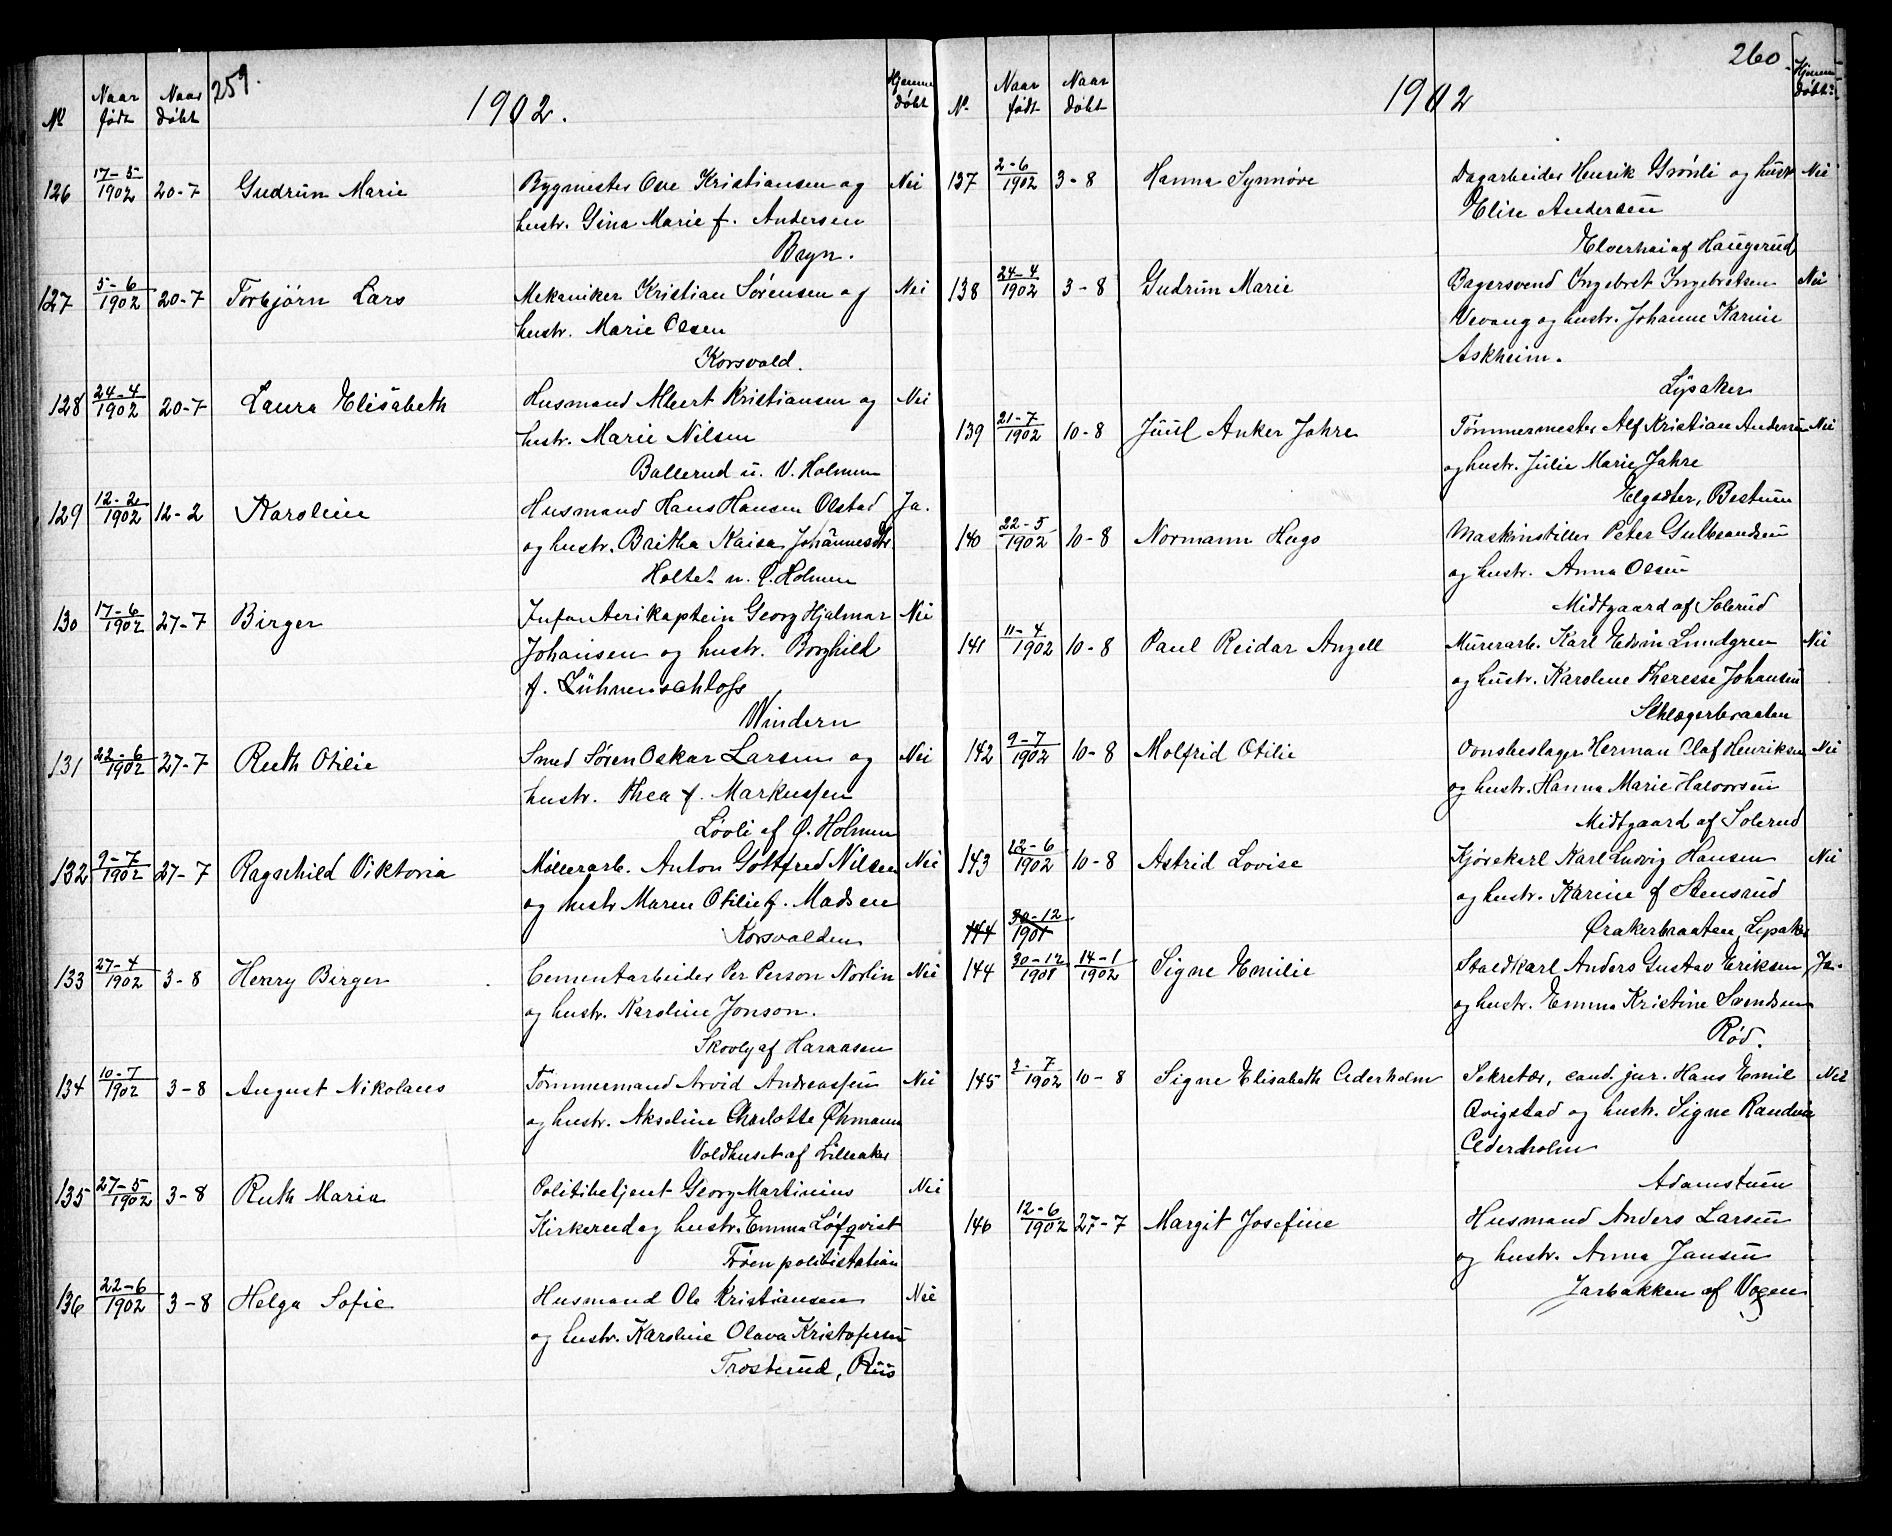 259.
1902.
No Naar født Naar døbt Hjemme døbt
126 17-5/1902 20-7 Gudrun Marie Bygmester Ove Kristiansen og Nei
hustr. Gina Marie f. Andersen
Bryn.
127 5-6/1902 20-7 Torbjørn Lars Mekaniker Kristian Sørensen og Nei
hustr. Marie Olsen
Korsvold.
128 24-4/1902 20-7 Laura Elisabeth Husmand Albert Kristiansen og Nei
hustr. Marie Nilsen
Ballerud u. V. Holmen
129 12-2/1902 12-2 Karoline Husmand Hans Hansen Olstad Ja.
og hustr. Britha Kaisa Johannesdtr
Holtet u. Ø. Holmen
130 17-6/1902 27-7 Birger Infanterikaptein Georg Hjalmar Nei
Johansen og hustr. Borghild
f. Lühnenschloss
Vindern
131 22-6/1902 27-7 Ruth Otilie Smed Søren Oskar Larsen og Nei
hustr. Thea f. Markussen
Løvli af Ø. Holmen
132 9-7/1902 27-7 Ragnhild Viktoria Møllerarb. Anton Gottfred Nilsen Nei
og hustr Maren Otilie f. Madsen
Korsvolden
133 27-4/1902 3-8 Henry Birger Cementarbeider Per Person Norlin Nei
og hustr. Karoline Jonson.
Skovly af Haraasen
134 10-7/1902 3-8 August Nikolaus Tømmermand Arvid Andreassen Nei
og hustr. Akseline Charlotte Øhmann
Voldhuset af Lilleaker
135 27-5/1902 3-8 Ruth Maria Politibetjent Georg Martinius Nei
Kirkerud og hustr. Emma Löfqvist
Frøen politistation
136 22-6/1902 3-8 Helga Sofie Husmand Ole Kristiansen Nei
og hustr. Karoline Olava Kristofersen
Trosterud, Riis
260.
1902
No Naar født Naar døbt Hjemme døbt
137 2-6/1902 3-8 Hanna Synnøve Dagarbeider Henrik Grønli og hustr Nei
Elise Andersen
Elverhøi af Haugerud
138 24-4/1902 3-8 Gudrun Marie Bagersvend Ingebret Ingebretsen Nei
Vevang og hustr. Johanne Karine
Askheim.
Lysaker
139 21-7/1902 10-8 Juul Anker Jahre Tømmermester Alf Kristian Andersen Nei
og hustr. Julie Marie Jahre
Elgsæter, Bestum
140 22-5/1902 10-8 Normann Hugo Maskinstiller Peter Gulbrandsen
og hustr. Anna Olsen
Midtgaard af Solerud
141 11-4/1902 10-8 Paul Reidar Angell Murerarb. Karl Edvin Lundgren Nei
og hustr. Karoline Theresse Johansen
Schlægerbraaten
142 9-7/1902 10-8 Molfrid Otilie Vonsbeslager Herman Olaf Henriksen Nei
og hustr. Hanna Marie Halvorsen
Midtgaard af Solerud
143 22-6/1902 10-8 Astrid Lovise Kjørekarl Karl Ludvig Hansen Nei
og hustr. Karine f Stensrud
Ørakerbraaten, Lysaker
144 30-12/1901
144 30-12/1901 14-1/1902 Signe Emilie Staldkarl Anders Gustav Eriksen Ja.
og hustr. Emma Kristine Svendsen
Rød.
145 3-7/1902 10-8 Signe Elisabeth Cederholm Sekretær, cand. jur. Hans Emil Nei
Qvigstad og hustr. Signe Randvia
Cederholm
Adamstuen
146 12-6/1902 27-7 Margit Josefine Husmand Anders Larsen
og hustr. Anna Jansen
Jarbakken af Vøyen